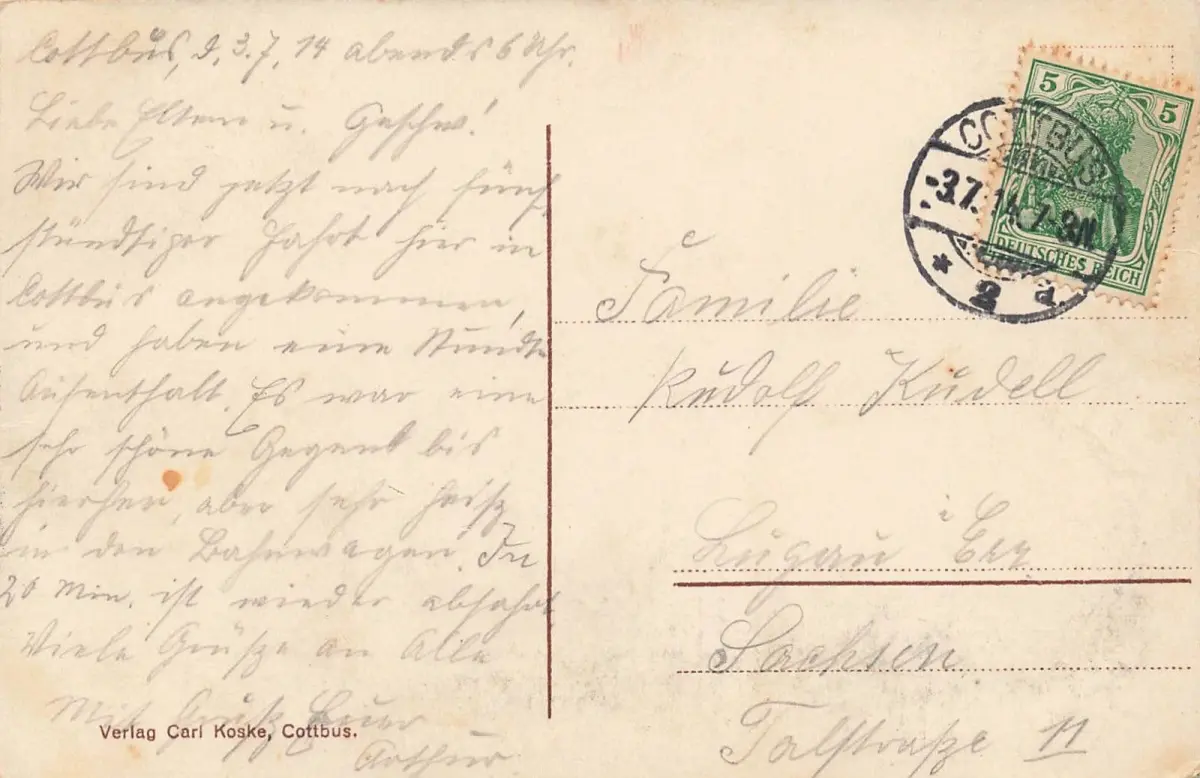 Cottbus, d. 3.7.14 abends 6 Uhr.
Liebe Eltern u. Geschw!
Wir sind jetzt nach fünf
stündtiger Fahrt hier in
Cottbus angekommen,
und haben eine Stunde
Aufenthalt. Es war eine
sehr schöne Gegend bis
hierher, aber sehr heisz
in den Bahnwagen. In
20 Min. ist wieder abfahrt
Viele Grüsze an Alle
Mit Grusz Euer
Arthur.
Verlag Carl Koske, Cottbus.
5 5
DEUTSCHES REICH
COTTBUS
-3.7.14.7-8N
* 2 a
Familie
Rudolf Kudell
Lugau i Erz
Sachsen
Talstraße 11